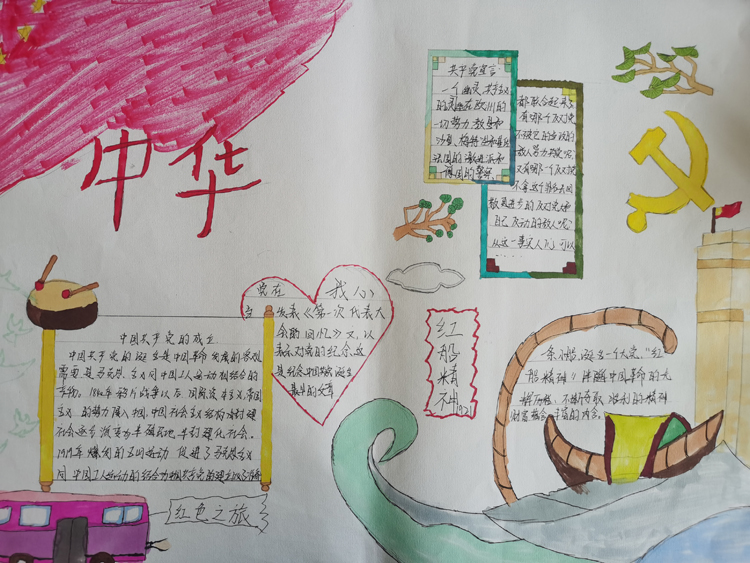 中华
共产党宣言
一个幽灵，共产主义
的幽灵在欧洲的
一切势力，教皇和
沙皇、梅特涅和基佐
法国的激进派和
德国的警察。
都联合起来了
有哪一个反对党
不被它的当政的
敌人骂为共党呢，
又有哪一个反对党
不拿这个罪名去回
敌更进步的反对党和
自己反动的敌人呢？
从这一事实人们可以
……
党在 我心
发表《第一次代表大
会的回忆》文，以
表示对党的纪念，这
是纪念中国共产党诞生
最早的文章
中国共产党的成立
中国共产党的诞生是中国革命发展的客观
需要是马克思主义同中国工人运动相结合的
产物。1840年鸦片战争以后，因
主义的势力侵入中国，中国社会
社会逐步演变为半殖民地、半封建化社会。
1919年爆发的五四运动，促进了马克思主义
同中国工人运动的结合为中国共产党的建立
红船精神
一条小船，诞生一个大党，“红
船精神”
红色之旅